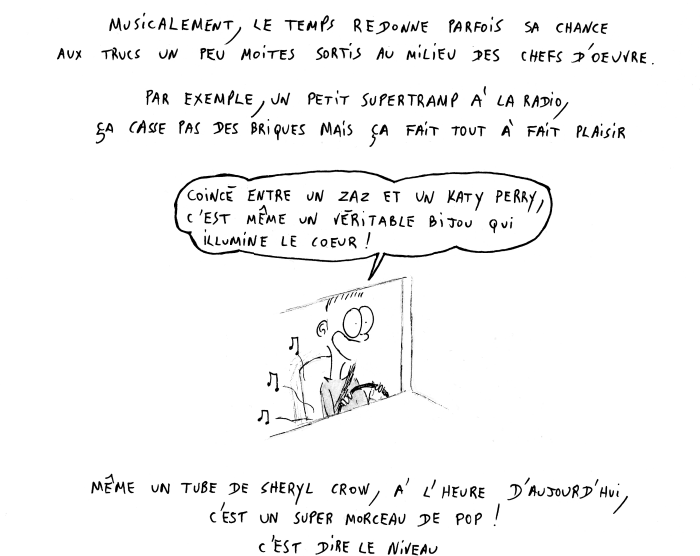 MUSICALEMENT, LE TEMPS REDONNE PARFOIS SA CHANCE
AUX TRUCS UN PEU MOITES SORTIS AU MILIEU DES CHEFS D'OEUVRE.
PAR EXEMPLE, UN PETIT SUPERTRAMP À LA RADIO,
ÇA CASSE PAS DES BRIQUES MAIS ÇA FAIT TOUT À FAIT PLAISIR
COINCÉ ENTRE UN ZAZ ET UN KATY PERRY,
C'EST MÊME UN VÉRITABLE BIJOU QUI
ILLUMINE LE COEUR !
MÊME UN TUBE DE SHERYL CROW, À L'HEURE D'AUJOURD'HUI,
C'EST UN SUPER MORCEAU DE POP !
C'EST DIRE LE NIVEAU